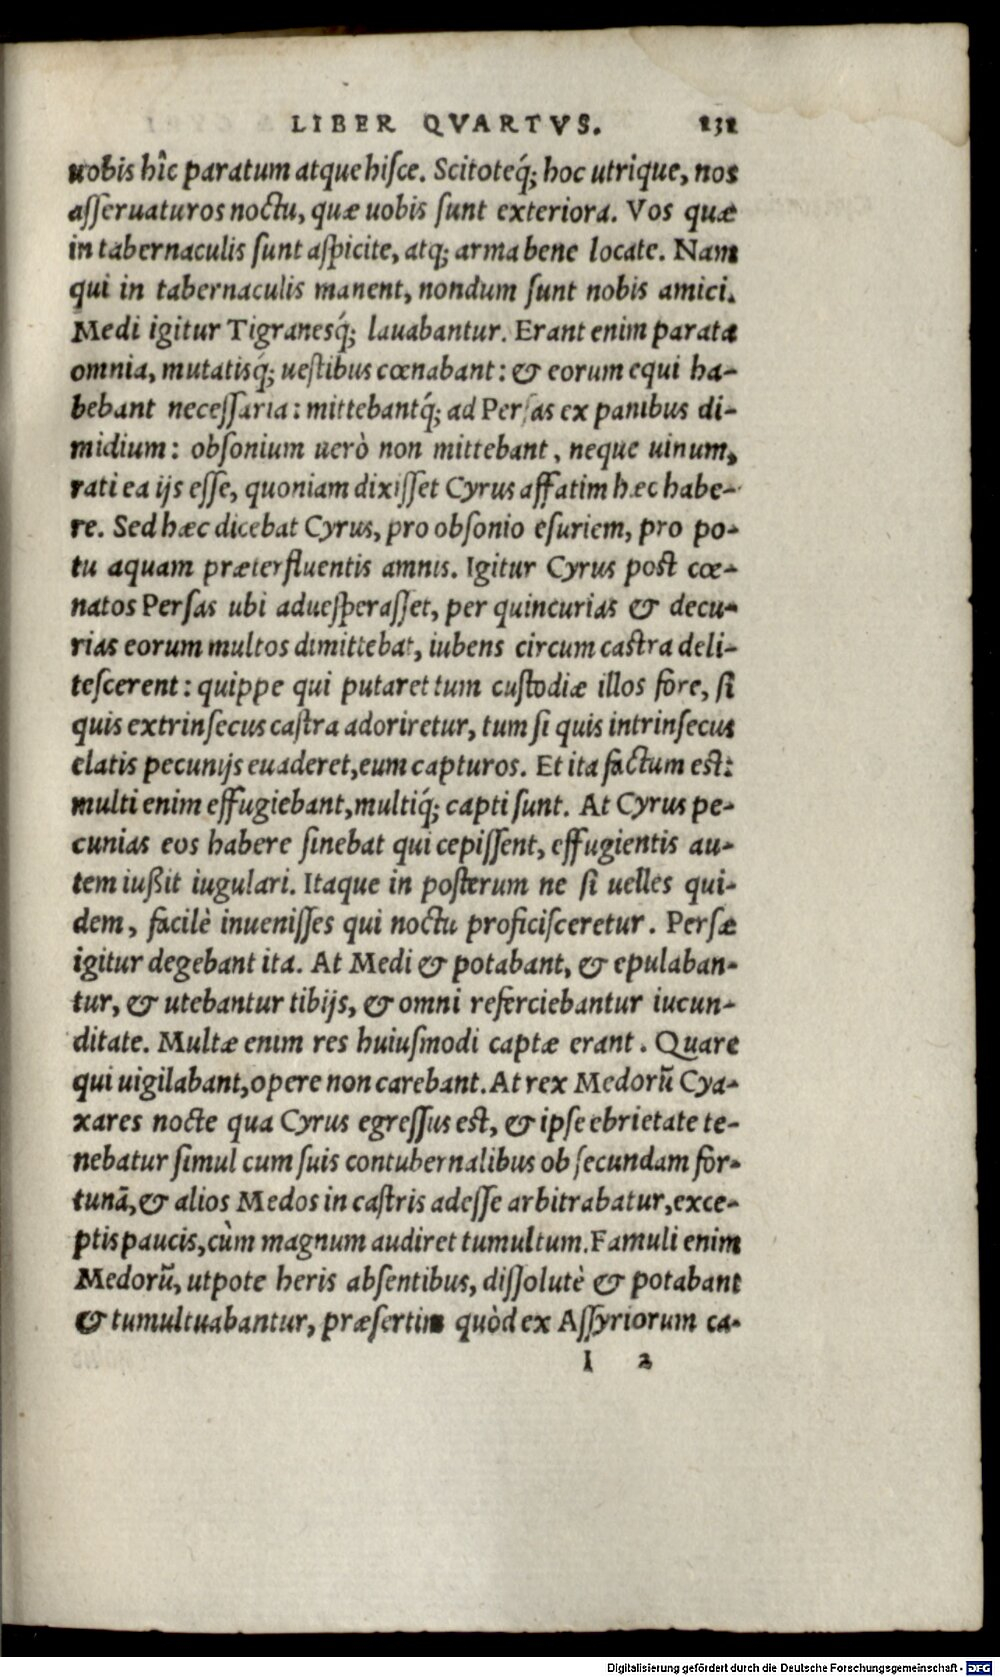 LIBER QVARTVS. 131
uobis hîc paratum atque hisce. Scitoteq́; hoc utrique, nos
asseruaturos noctu, quæ uobis sunt exteriora. Vos quæ
in tabernaculis sunt aspicite, atq; arma bene locate. Nam
qui in tabernaculis manent, nondum sunt nobis amici.
Medi igitur Tigranesq́; lauabantur. Erant enim parata
omnia, mutatisq́; uestibus cœnabant: & eorum equi ha-
bebant necessaria: mittebantq́; ad Persas ex panibus di-
midium: obsonium uerò non mittebant, neque uinum,
rati ea ijs esse, quoniam dixisset Cyrus affatim hæc habe-
re. Sed hæc dicebat Cyrus, pro obsonio esuriem, pro po-
tu aquam præterfluentis amnis. Igitur Cyrus post cœ-
natos Persas ubi aduesperasset, per quincurias & decu-
rias eorum multos dimittebat, iubens circum castra deli-
tescerent: quippe qui putaret tum custodiæ illos fore, si
quis extrinsecus castra adoriretur, tum si quis intrinsecus
elatis pecunijs euaderet, eum capturos. Et ita factum est:
multi enim effugiebant, multiq́; capti sunt. At Cyrus pe-
cunias eos habere sinebat qui cepissent, effugientis au-
tem iußit iugulari. Itaque in posterum ne si uelles qui-
dem, facilè inuenisses qui noctu proficisceretur. Persæ
igitur degebant ita. At Medi & potabant, & epulaban-
tur, & utebantur tibijs, & omni referciebantur iucun-
ditate. Multæ enim res huiusmodi captæ erant. Quare
qui uigilabant, opere non carebant. At rex Medorũ Cya-
xares nocte qua Cyrus egressus est, & ipse ebrietate te-
nebatur simul cum suis contubernalibus ob secundam for-
tunã, & alios Medos in castris adesse arbitrabatur, exce-
ptis paucis, cùm magnum audiret tumultum. Famuli enim
Medorũ, utpote heris absentibus, dissolutè & potabant
& tumultuabantur, præsertim quòd ex Assyriorum ca-
I 2
Digitalisierung gefördert durch die Deutsche Forschungsgemeinschaft - DFG